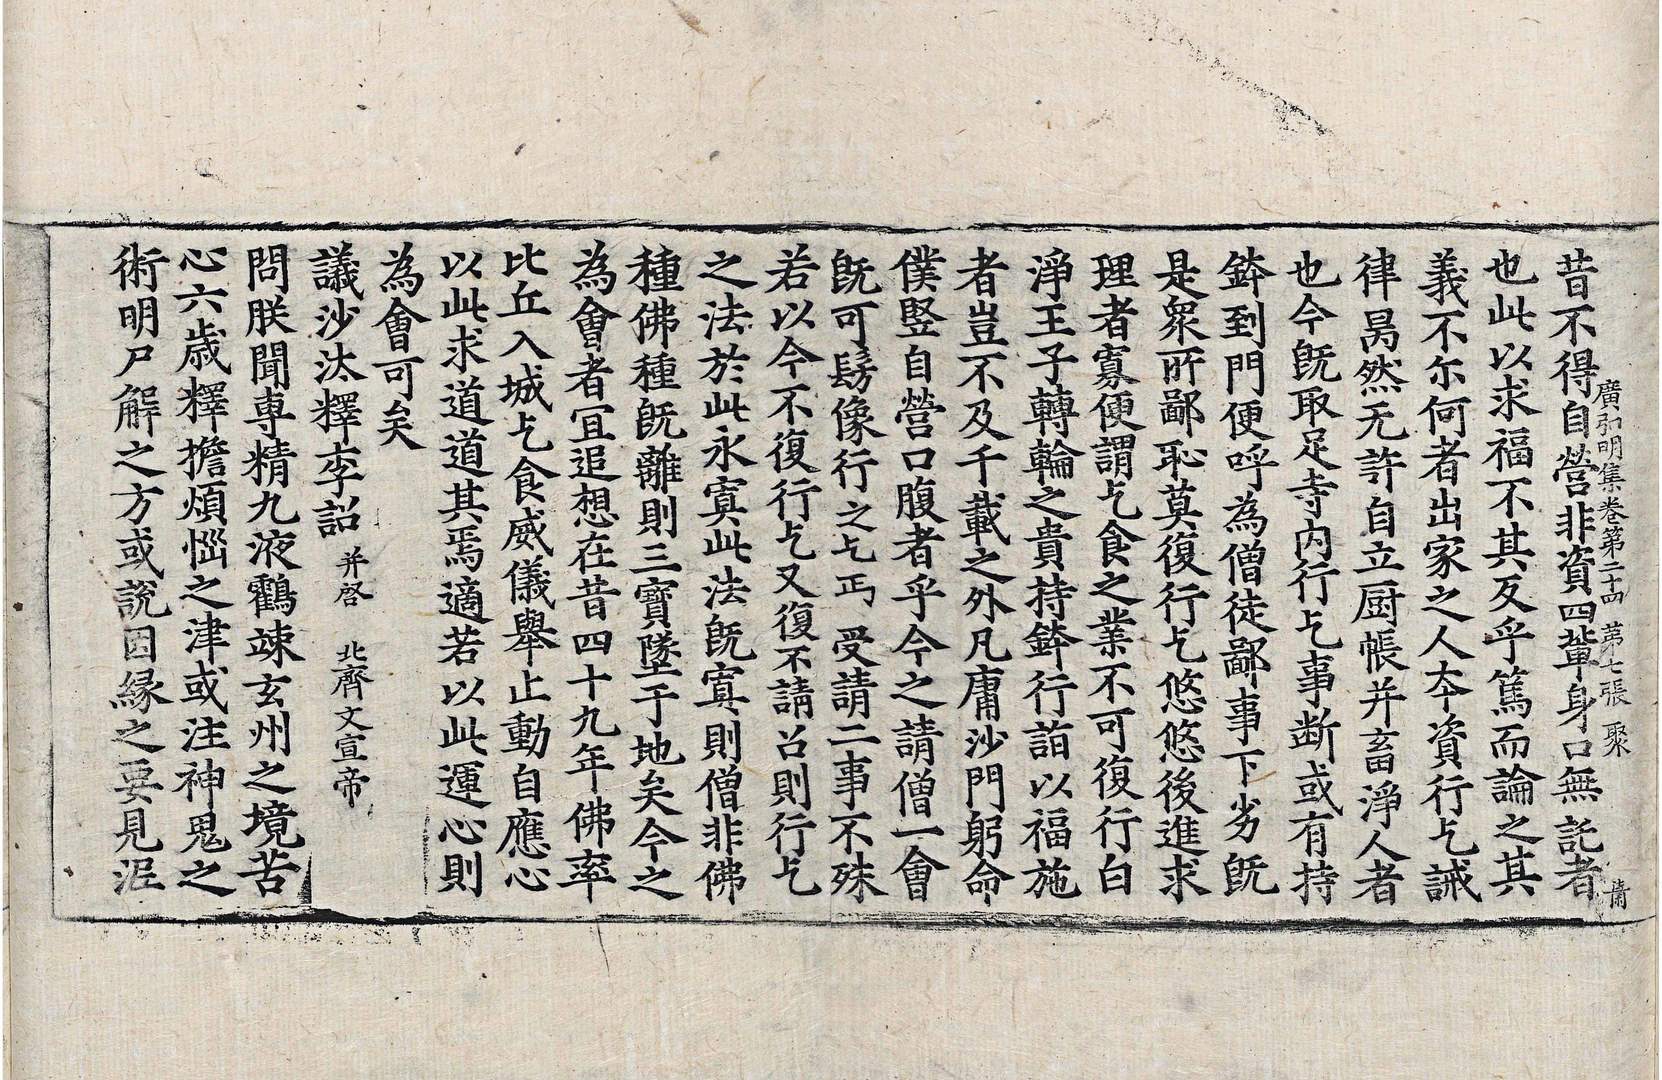 廣弘明集卷第二十四 第七張 聚
昔不得自營非資四軰身口無託者
也此以求福不其反乎篤而論之其
義不尓何者出家之人夲資行乞誡
律昺然无許自立厨帳并畜淨人者
也今旣取足寺内行乞事断或有持
鉢到門便呼為僧徒鄙事下劣旣
是衆所鄙恥莫復行乞悠悠後進求
理者寡便謂乞食之業不可復行白
淨王子轉輪之貴持鉢行詣以福施
者豈不及千載之外凡庸沙門躬命
僕竪自營口腹者乎今之請僧一會
旣可髣像行之乞丐受請二事不殊
若以今不復行乞又復不請召則行乞
之法於此永㝠此法旣㝠則僧非佛
種佛種旣離則三寶墜于地矣今之
為會者冝追想在昔四十九年佛率
比丘入城乞食威儀舉止動自應心
以此求道道其焉適若以此運心則
為會可矣
議沙汰釋李詔 并啓 北齊文宣帝
問朕聞専精九液鸖竦玄州之境苦
心六歲釋擔煩惱之津或注神鬼之
術明尸解之方或說因縁之要見泥